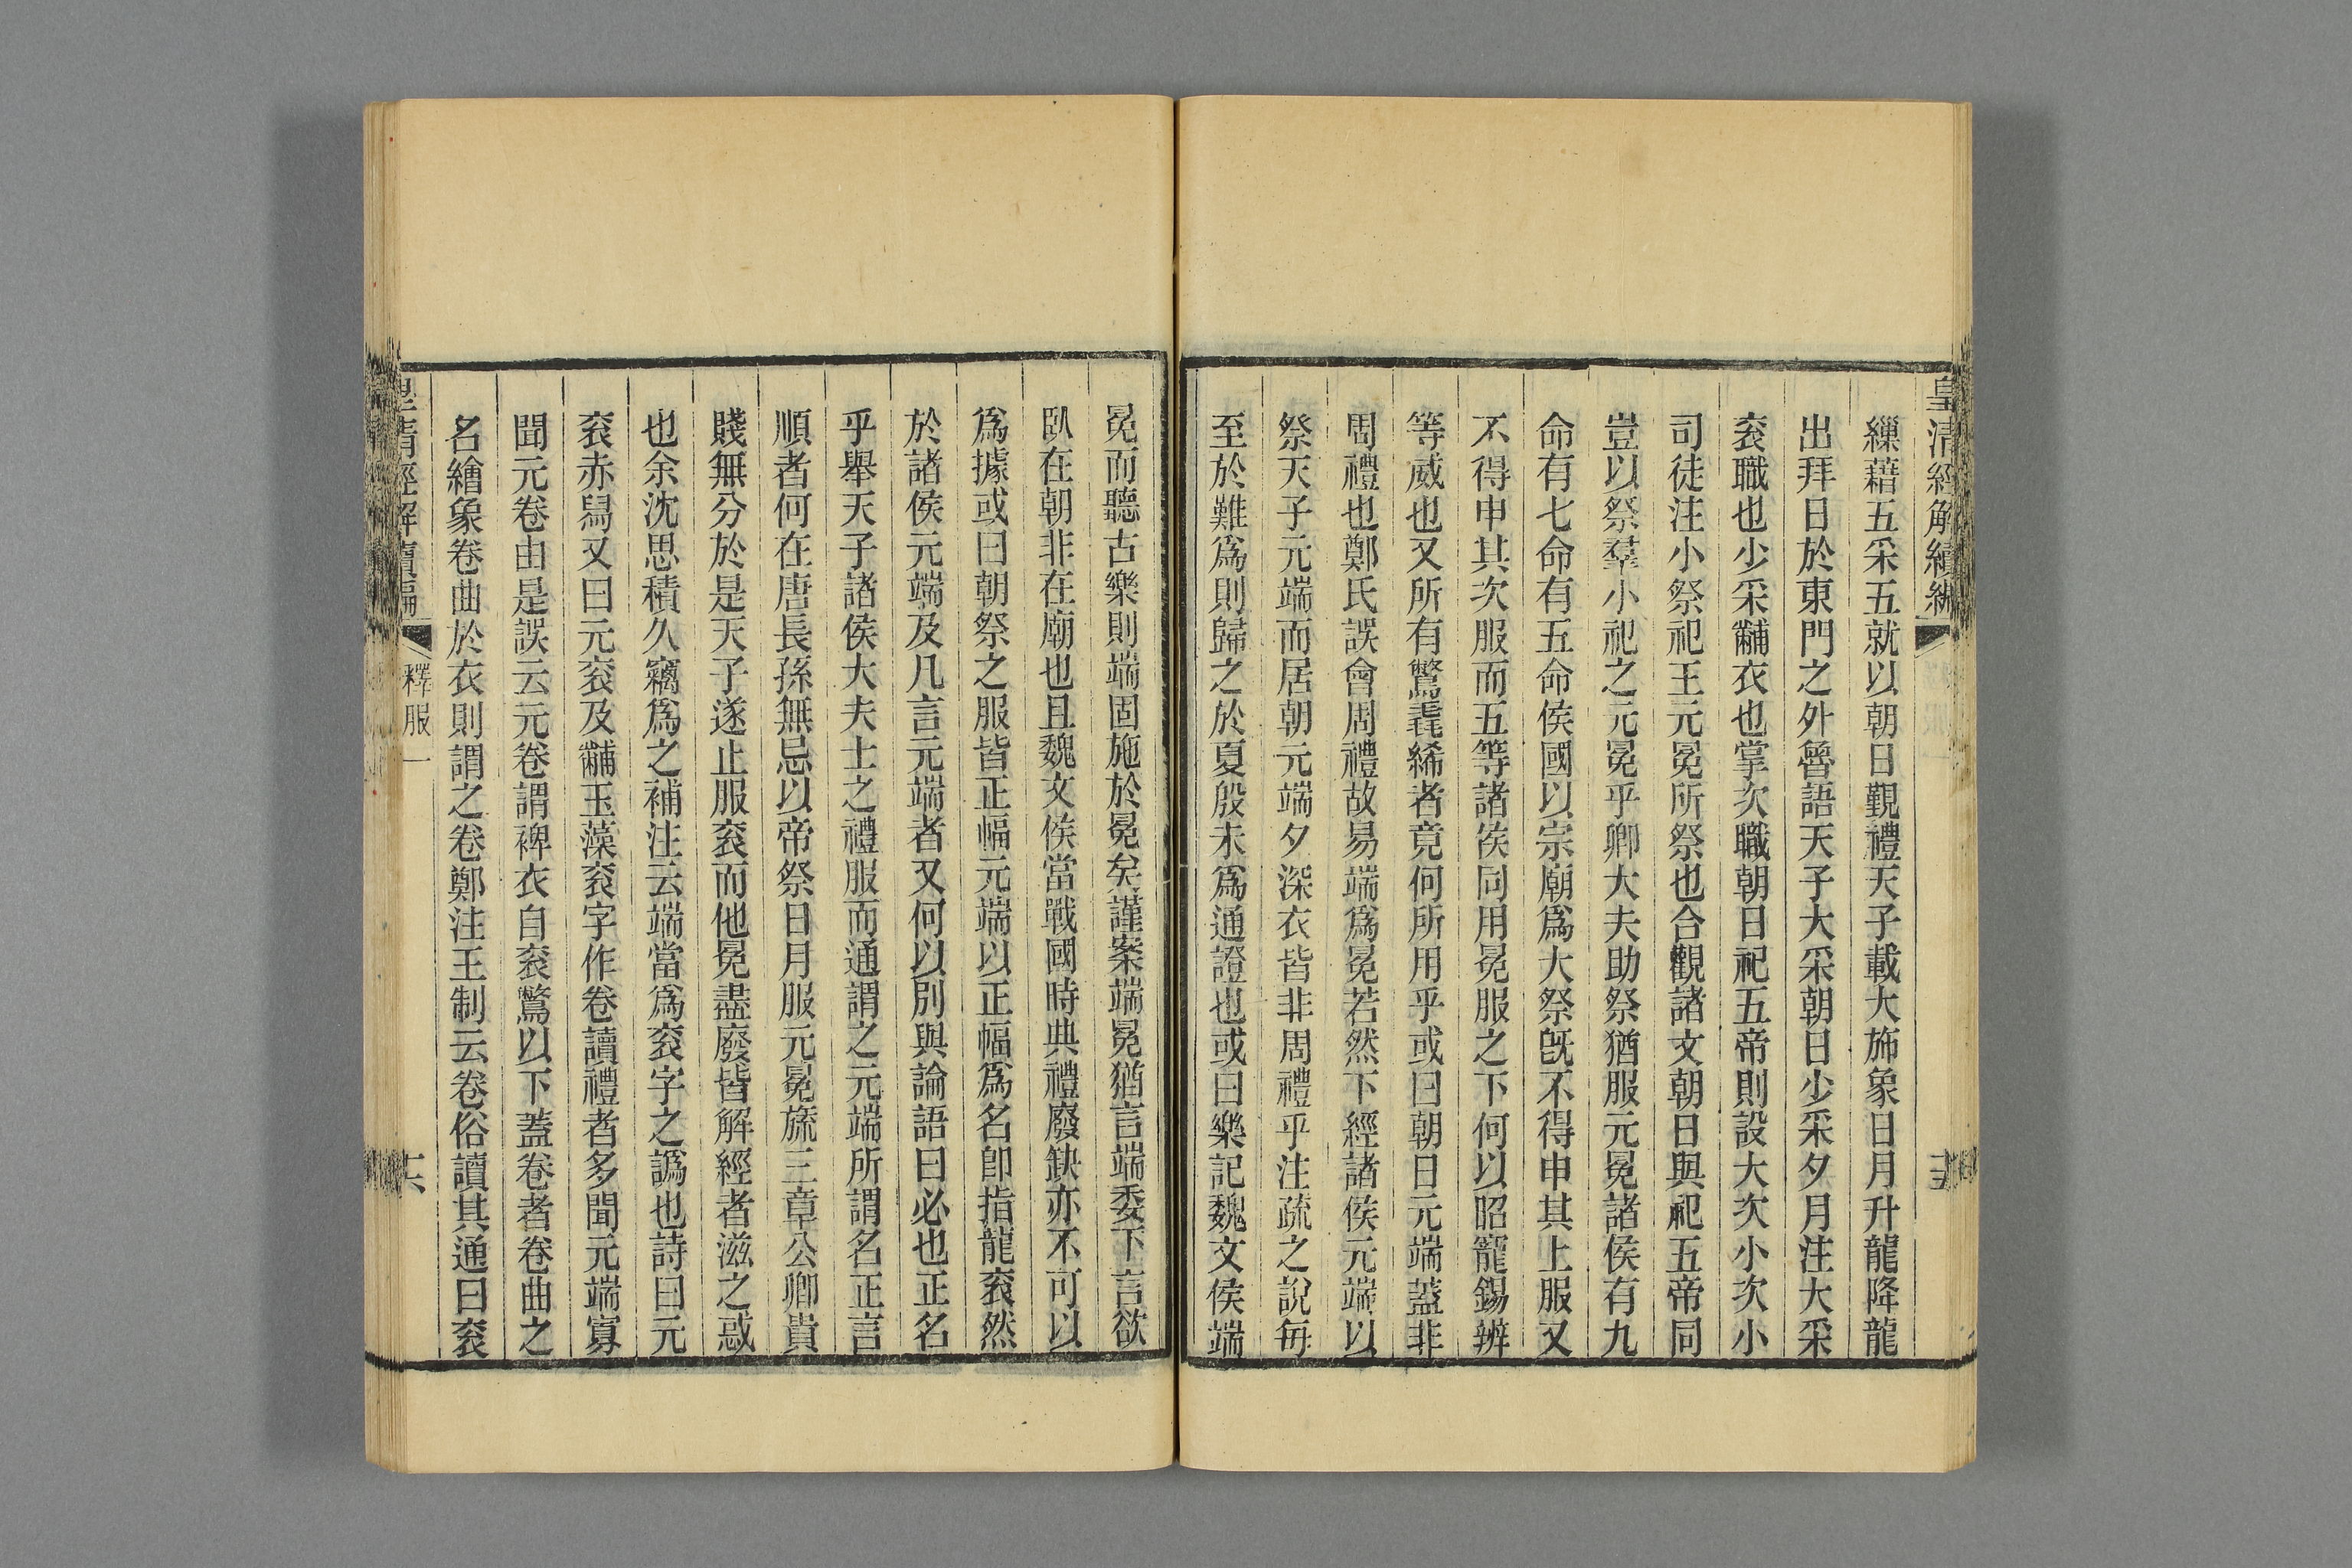 皇清經解續編
繅藉五采五就以朝日覲禮天子載大斾象日月升龍降龍
出拜日於東門之外魯語天子大采朝日少采夕月注大采
衮職也少采黼衣也掌次職朝日祀五帝則設大次小次小
司徒注小祭祀王元冕所祭也合觀諸文朝日與祀五帝同
豈以祭羣小祀之元冕乎卿大夫助祭猶服元冕諸侯有九
命有七命有五命侯國以宗廟爲大祭旣不得申其上服又
不得申其次服而五等諸侯同用冕服之下何以昭寵錫辨
等威也又所有鷩毳絺者竟何所用乎或曰朝日元端蓋非
周禮也鄭氏誤會周禮故易端爲冕若然下經諸侯元端以
祭天子元端而居朝元端夕深衣皆非周禮乎注疏之說每
至於難爲則歸之於夏殷未爲通證也或曰樂記魏文侯端
冕而聽古樂則端固施於冕矣謹案端冕猶言端委下言欲
臥在朝非在廟也且魏文侯當戰國時典禮廢缺亦不可以
爲據或曰朝祭之服皆正幅元端以正幅爲名卽指龍衮然
於諸侯元端及凡言元端者又何以別與論語曰必也正名
乎舉天子諸侯大夫士之禮服而通謂之元端所謂名正言
順者何在唐長孫無忌以帝祭日月服元冕旒三章公卿貴
賤無分於是天子遂止服衮而他冕盡廢皆解經者滋之惑
也余沈思積久竊爲之補注云端當爲衮字之譌也詩曰元
衮赤舄又曰元衮及黼玉藻衮字作卷讀禮者多聞元端寡
聞元卷由是誤云元卷謂裨衣自衮鷩以下蓋卷者卷曲之
名繪象卷曲於衣則謂之卷鄭注王制云卷俗讀其通曰衮
皇清經解續編
釋服一
十六